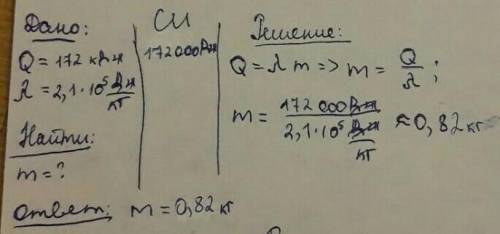 Дано:
Q = 172 кДж
λ = 2,1·10⁵ Дж/кг
Найти:
m = ?
СИ
172000Дж
Решение:
Q = λ m => m = Q/λ ;
m = 172 000Дж / 2,1·10⁵ Дж/кг ≈ 0,82 кг
Ответ: m = 0,82 кг